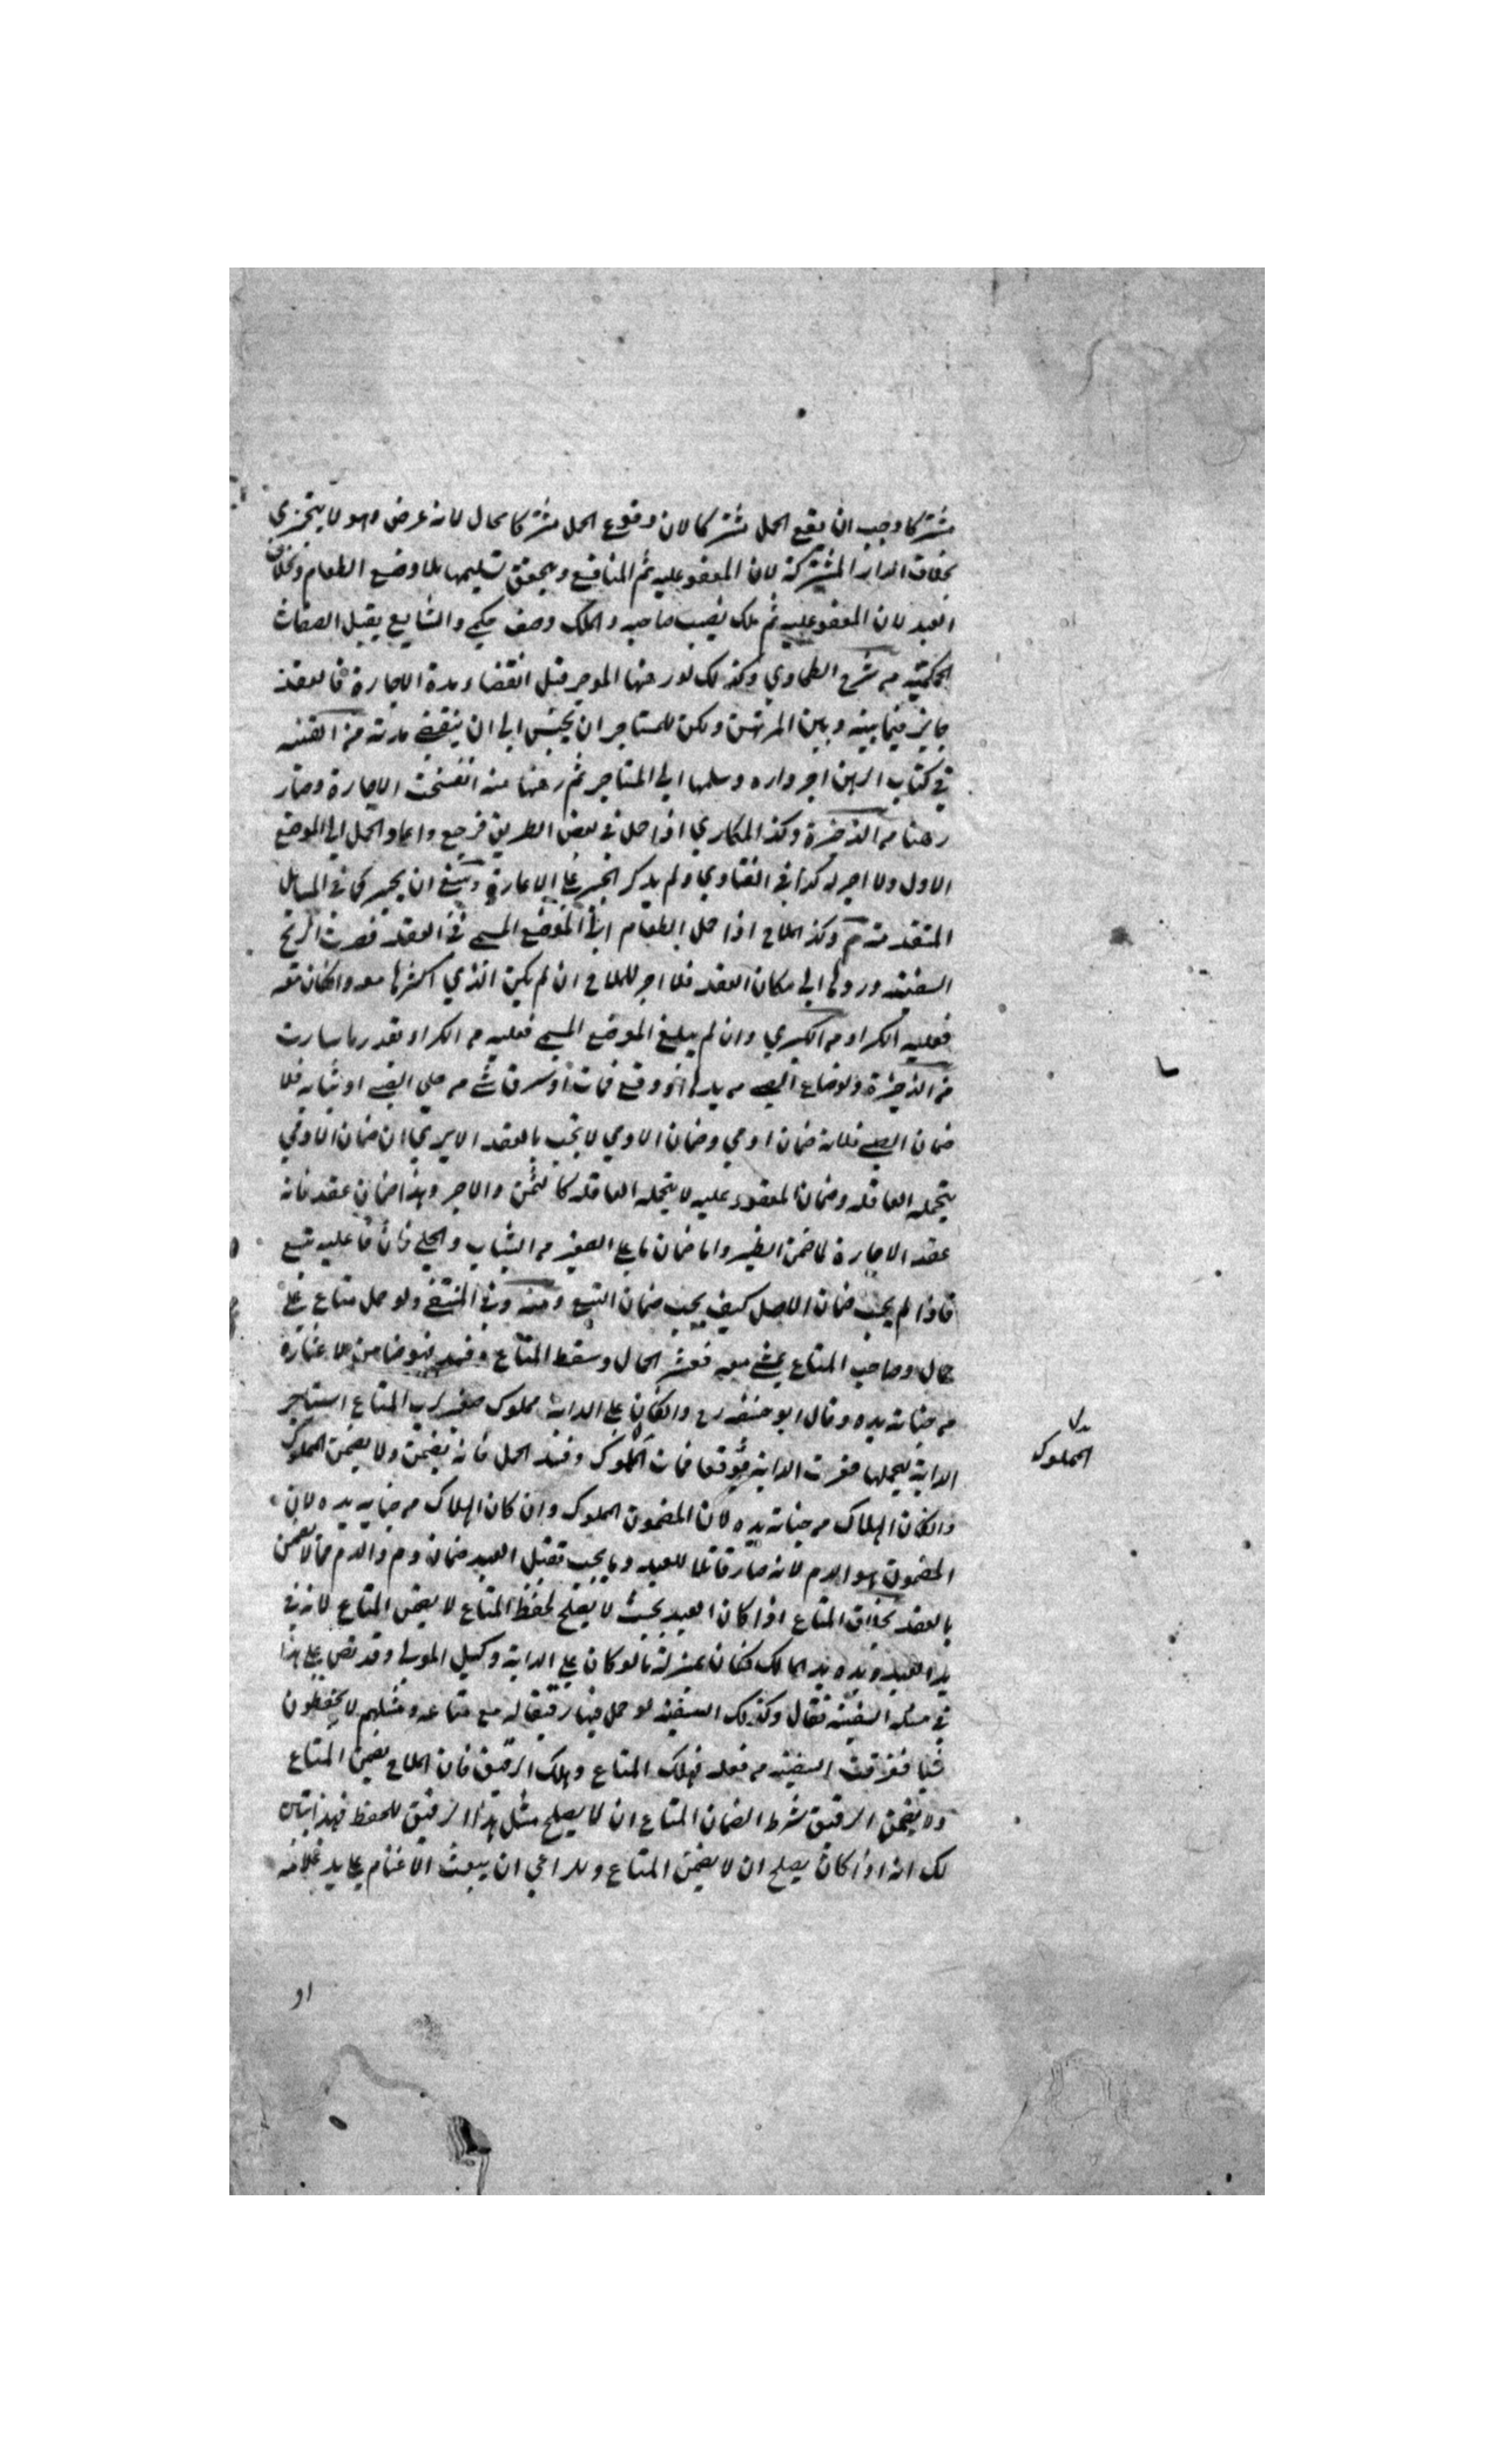 مشتركا وجب ان يقع الحمل مشتركا لان وقوع الحمل مشتركا محال لانه عرض وهو لا يتجزي
بخلاف الدار المشتركة لان المعقو عليه ثم المنافع ويتحقق تسليمها بلا وضع الطعام وبخلاف
العبد لان المعقو عليه ثم ملك نصيب صاحبه والملك وصف حكمي والشايع يقبل الصفات
الحكمية من شرح الطحاوي وكذلك لو رهنها الموجر قبل انقضاء مدة الاجارة فالعقد
جايز فيما بينه وبين المرتهن ولكن للمستاجر ان يحبس الي ان ينقضي مدته من القنيه
في كتاب الرهن اجر داره وسلمها الي المستاجر ثم رهنها منه انفسخت الاجارة وصار
رهنا من الذخيرة وكذا المكاري اذا حمل في بعض الطريق فرجع واعاد الحمل الي الموضع
الاول ولا اجر له كذا في الفتاوي ولم يذكر الجبر علي الاعارة وينبغي ان يجبر كما في المسايل
المتقدمة م وكذا الملاح اذا حمل الطعام الي الموضع المسمي في العقد فصرت الريح
السفينة وردها الي مكان العقد فلا اجر للملاح ان لم يكن الذي اكثرها معه وانكان معه
فعليه الكراء من الكبري وان لم يبلغ الموضع المسمي فعليه من الكراء بقدر ما سارت
من الذخيرة ولو ضاع الصبي من يدها او وقع فمات او سرق شي من حلي الصبي او ثيابه فلا
ضمان الصبي فلانه ضمان ادمي وضمان الادمي لا يجب بالعقد الا يري ان ضمان الادمي
يتحمله العاقله وضمان المعقود عليه لا يتحمله العاقله كالثمن والاجر وهذا ضمان عقد فانه
عقد الاجارة لما ضمن الظير واما ضمان ما علي الصغير من الثياب والحلي فان ما عليه تبع
فاذا لم يجب ضمان الاصل كيف يجب ضمان التبع ومنه وفي المنتقي ولو حمل متاع علي
حمال وصاحب المتاع يمشي معه فعثر الحمال وسقط المتاع وفسد فهو ضامن لان عثاره
من جناية يده وقال ابو حنيفه رح وانكان علي الدابة مملوك صغير لرب المتاع استاجر
الدابة ليحملها فعثرت الدابة فوقعا فمات المملوك وفسد الحمل فانه يضمن ولا يضمن المملوك
وانكان الهلاك من جناية يده لان المضمون المملوك وان كان الهلاك من جنايه يده لان
المضمون هو الدم لانه صار قاتلا للعبد وما يجب بقتل العبد ضمان دم والدم مما لا يضمن
بالعقد بخلاف المتاع اذا كان العبد بحيث لا يصلح لحفظ المتاع لا يضمن المتاع لانه في
يد العبد ويده يد المالك فكان بمنزلة ما لو كان علي الدابة وكيل المولي وقد نص علي هذا
في مسله السفينة فقال وكذلك السفينه لو حمل فيها رقيقا له مع متاعه ومثلهم لا يحفظون
شيا فغرقت السفينه من فعله فهلك المتاع وهلك الرقيق فان الملاح يضمن المتاع
ولا يضمن الرقيق شرط الضمان المتاع ان لا يصلح مثل هذا الرقيق للحفظ فهذا يتبين
لك انه اذا كان يصلح ان لا يضمن المتاع وللراعي ان يبعث الاغنام علي يد غلامه
بدل
المملوك
او